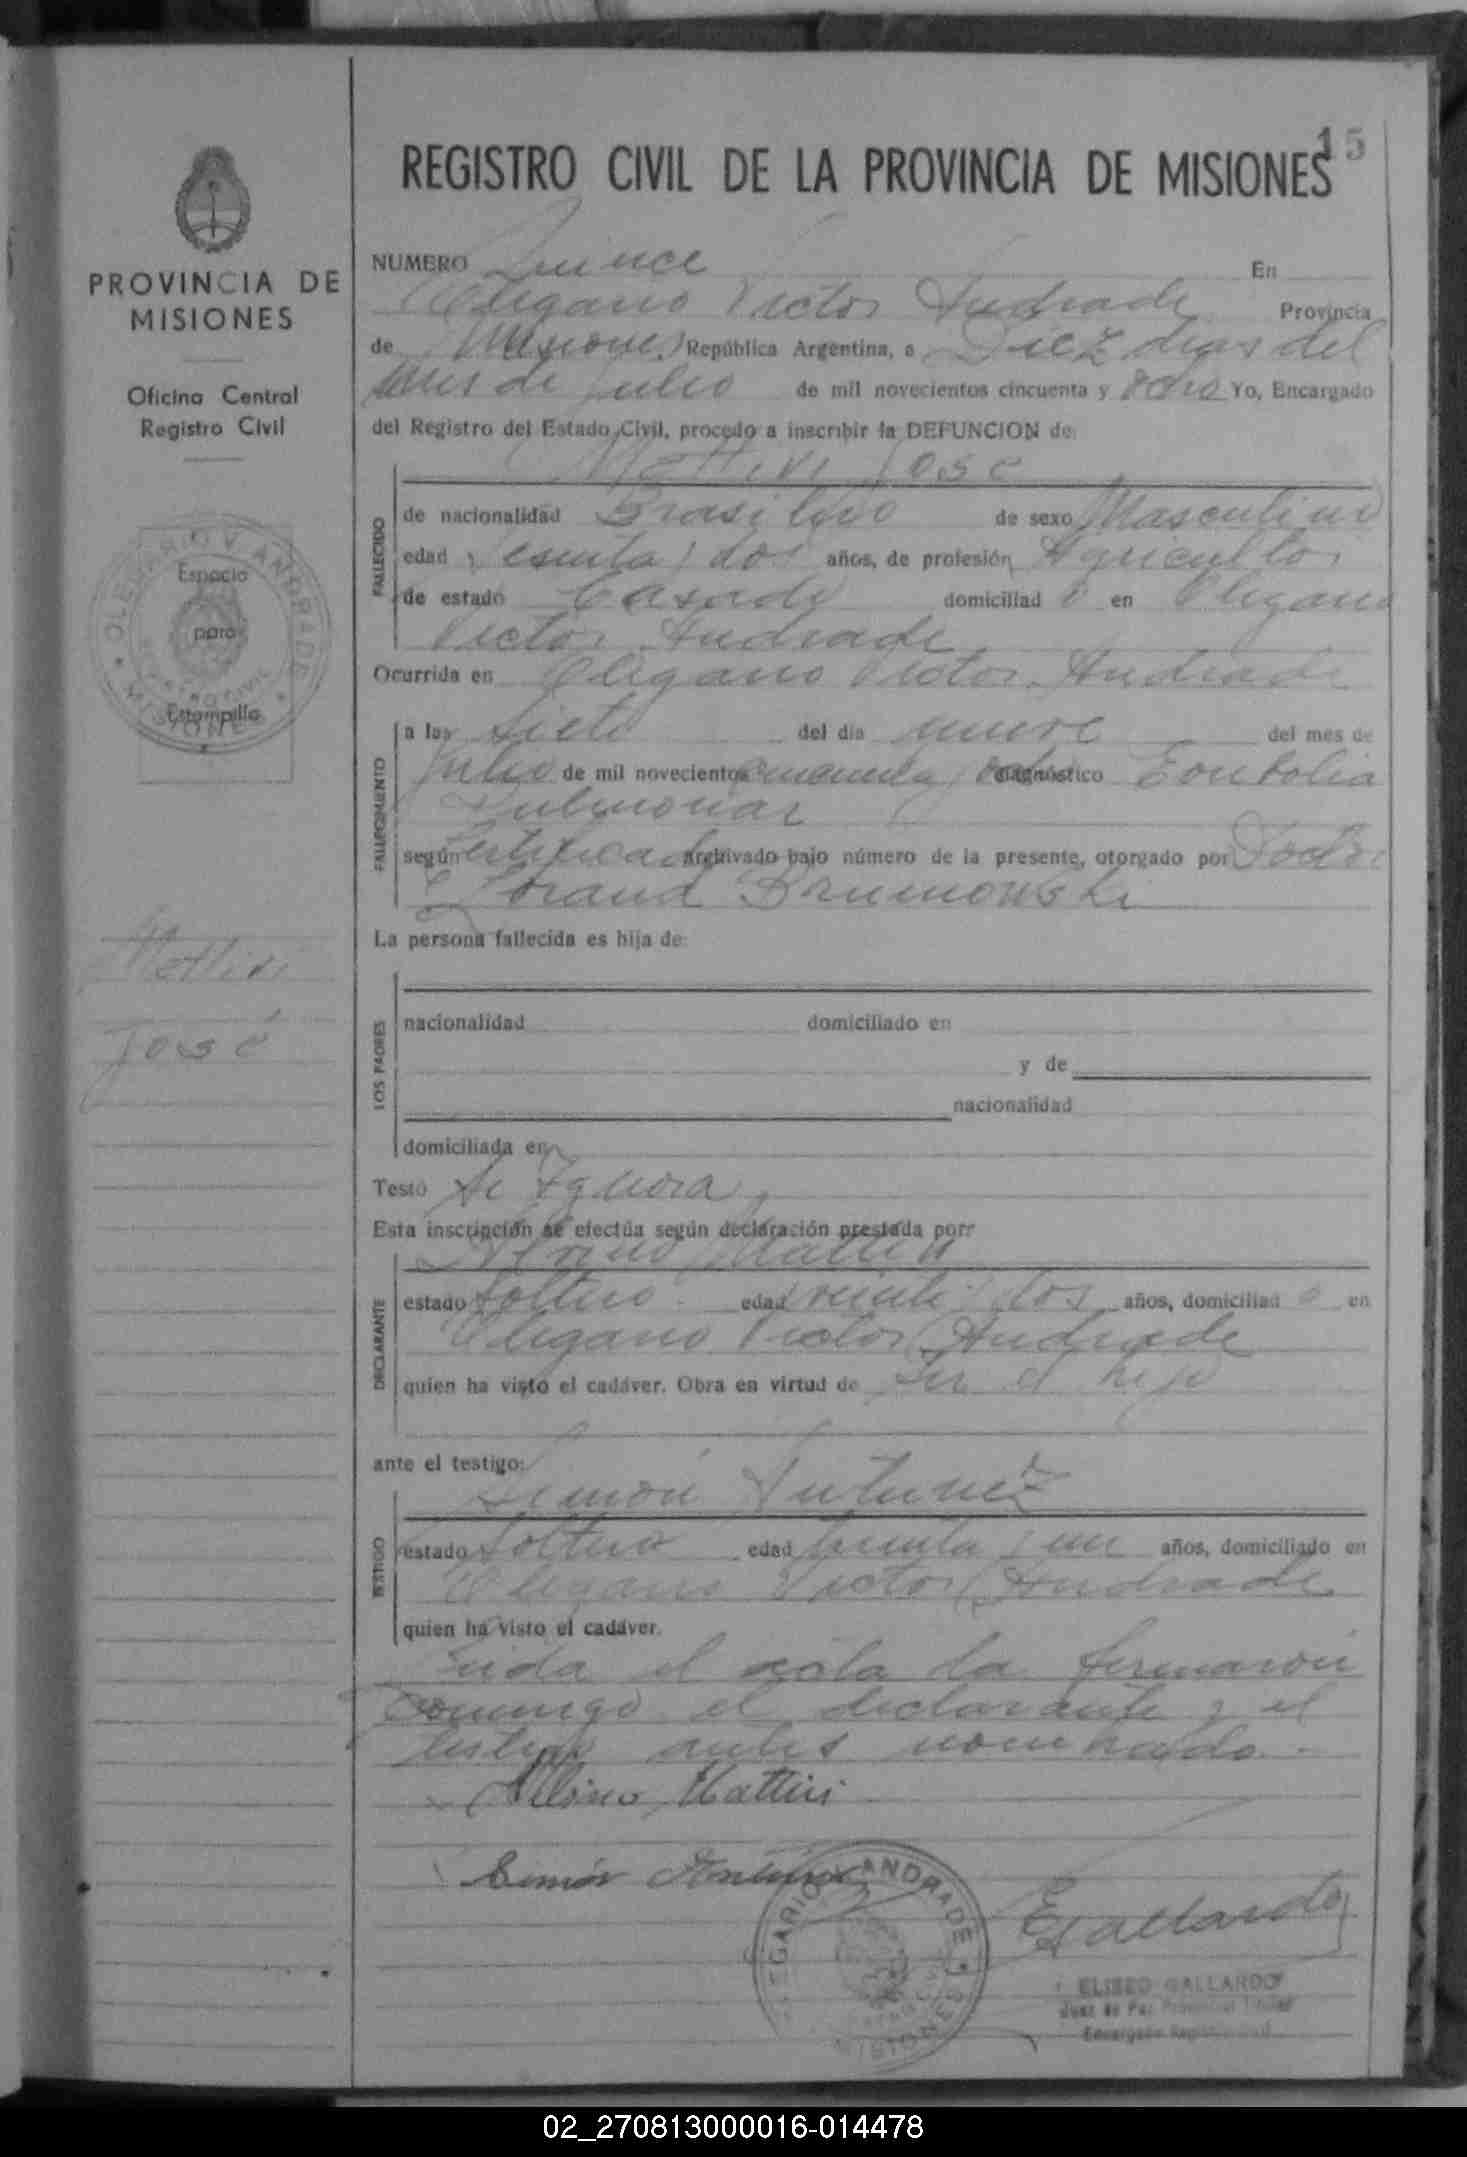 15
REGISTRO CIVIL DE LA PROVINCIA DE MISIONES
PROVINCIA DE
MISIONES
Oficina Central
Registro Civil
OLEGARIO V. ANDRADE
Espacio
para
Estampilla
REGISTRO CIVIL
MISIONES
Mattivi
José
NUMERO Quince En
Olegario Victor Andrade Provincia
de Misiones, República Argentina, a Diez dias del
mes de Julio de mil novecientos cincuenta y ocho Yo, Encargado
del Registro del Estado Civil, procedo a inscribir la DEFUNCION de:
Mattivi José
FALLECIDO
de nacionalidad Brasileño de sexo Masculino
edad sesenta y dos años, de profesión Agricultor
de estado Casado domiciliad o en Olegario
Victor Andrade
Ocurrida en Olegario Victor Andrade
FALLECIMIENTO
a las siete del día nueve del mes de
Julio de mil novecientos cincuenta y ocho diagnóstico Embolia
Pulmonar
según Certificado archivado bajo número de la presente, otorgado por Doctor
Lorand Brumowski
La persona fallecida es hija de:
LOS PADRES
nacionalidad domiciliado en
y de
nacionalidad
domiciliada en
Testó Se Ignora
Esta inscripción se efectúa según declaración prestada por:
Albino Mattivi
DECLARANTE
estado Soltero edad veinte y dos años, domiciliad o en
Olegario Victor Andrade
quien ha visto el cadáver. Obra en virtud de ser el hijo
ante el testigo:
Simón Antunez
TESTIGO
estado Soltero edad treinta y un años, domiciliado en
Olegario Victor Andrade
quien ha visto el cadáver.
Leida el acta la firmaron
conmigo el declarante y el
testigo antes nombrado.-
Albino Mattivi
Simón Antunez
OLEGARIO V. ANDRADE
MISIONES
EGallardo
ELISEO GALLARDO
Juez de Paz Provincial Titular